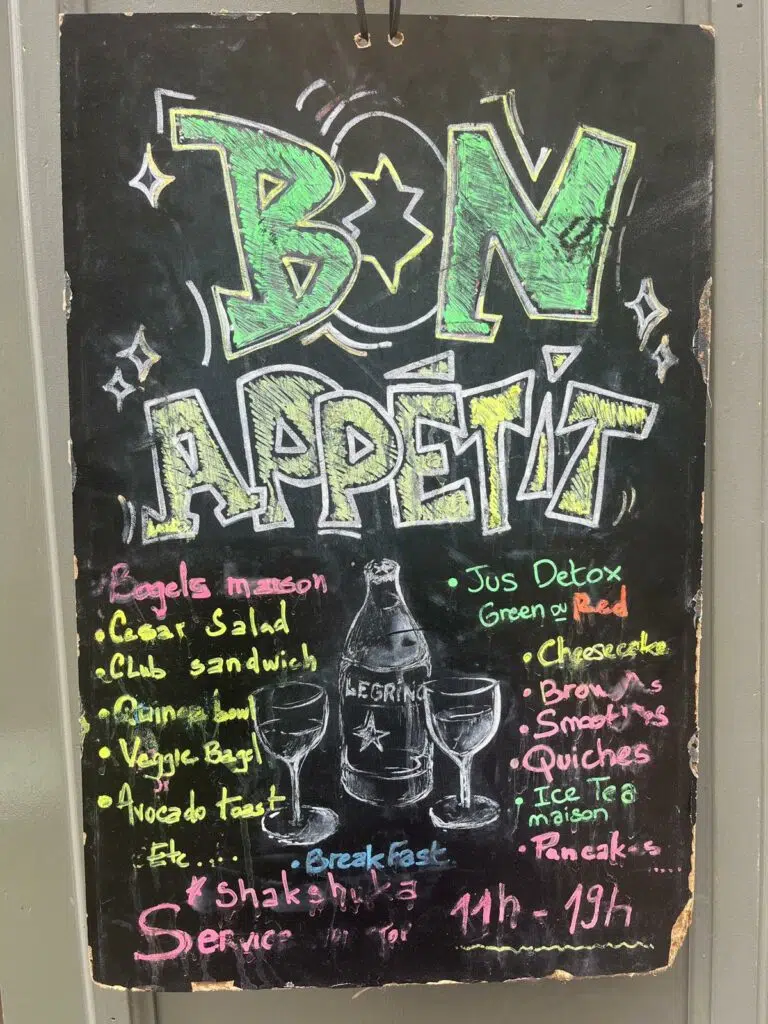 BON
APPÉTIT
Bagels maison
• Cesar Salad
• Club sandwich
• Quinoa bowl
• Veggie Bagel
• Avocado toast
Etc....
LEGRING
• Jus Detox
Green ou Red
• Cheesecake
• Quiches
• Ice Tea
maison
• BreakFast
* shakshuka
Service
11h - 19h